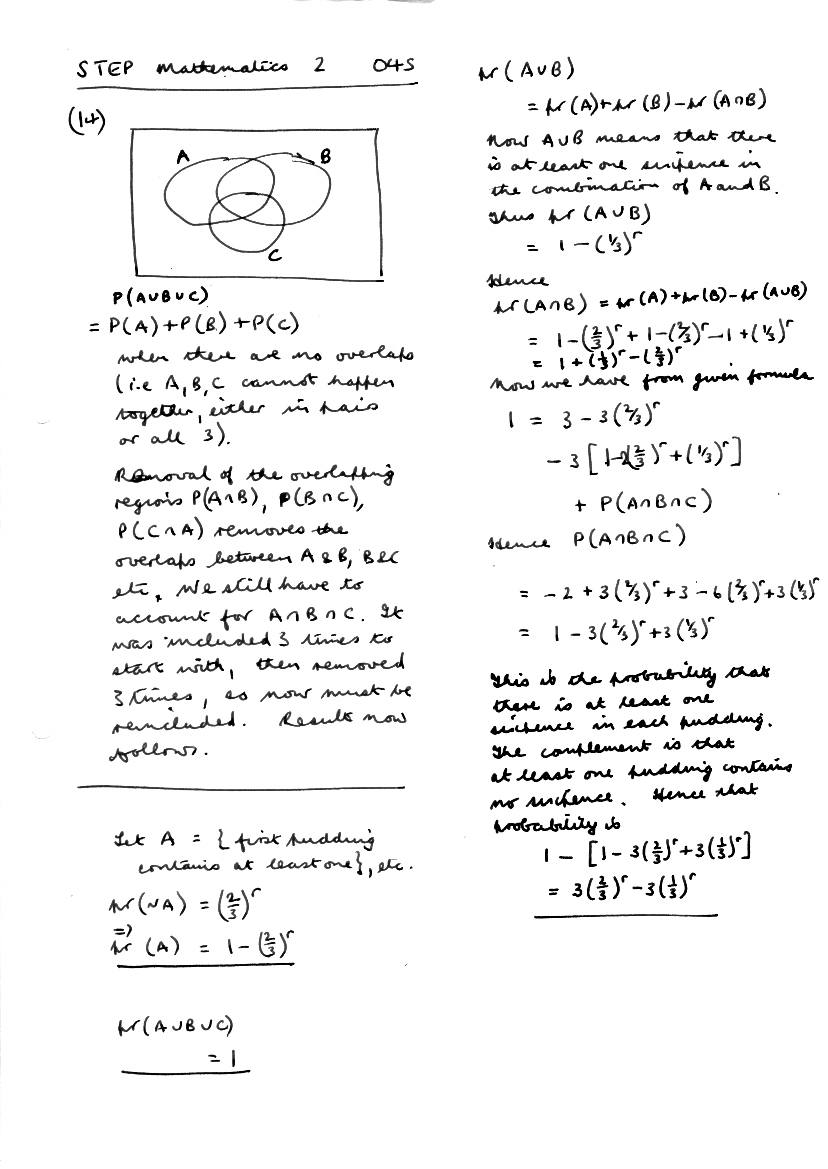 STEP Mathematics 2 04S
(14)
A B
C
P(A∪B∪C)
= P(A)+P(B)+P(C)
when there are no overlaps
(i.e A,B,C cannot happen
together, either in pairs
or all 3).
Removal of the overlapping
regions P(A∩B), P(B∩C),
P(C∩A) removes the
overlaps between A & B, B&C
etc. We still have to
account for A∩B∩C. It
was included 3 times to
start with, then removed
3 times, so now must be
reincluded. Results now
follows.
Let A = { first pudding
contains at least one}, etc.
pr(~A) = (2/3)^r
=>
pr (A) = 1-(2/3)^r
pr(A∪B∪C)
= 1
pr(A∪B)
= pr(A)+pr(B)-pr(A∩B)
Now A∪B means that there
is at least one sixpence in
the combination of A and B.
Thus pr(A∪B)
= 1-(1/3)^r
Hence
pr(A∩B) = pr(A)+pr(B)-pr(A∪B)
= 1-(2/3)^r + 1-(2/3)^r -1 +(1/3)^r
= 1+(1/3)^r -(2/3)^r
Now we have from given formula
1 = 3 - 3(2/3)^r
- 3[1-2(2/3)^r+(1/3)^r]
+ P(A∩B∩C)
Hence P(A∩B∩C)
= -2 + 3(2/3)^r +3 -6(2/3)^r+3(1/3)^r
= 1-3(2/3)^r+3(1/3)^r
This is the probability that
there is at least one
sixpence in each pudding.
The complement is that
at least one pudding contains
no sixpence. Hence that
probability is
1 - [1-3(2/3)^r+3(1/3)^r]
= 3(2/3)^r -3(1/3)^r